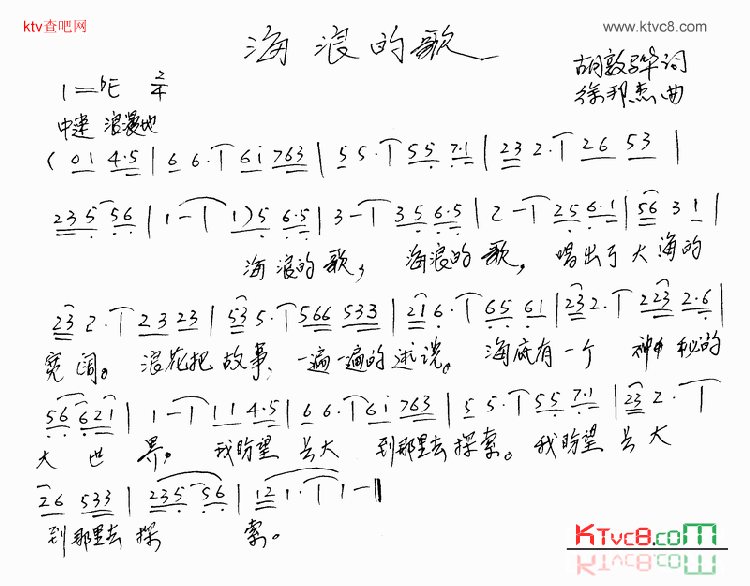 ktv查吧网
www.ktvc8.com
海浪的歌
1=bE 2/4
胡敦骅词
徐邦杰曲
中速 浪漫地
( 01 4·5 | 66· 61 763 | 55· 55 7·1 | 232· 26 53 |
235 56 | 1- 1)5 6·5 | 3- 35 6·5 | 2- 25 6·1 | 56 31 |
海浪的歌, 海浪的歌, 唱出了大海的
232· 23 23 | 535· 566 533 | 216· 65 61 | 232· 223 2·6 |
宽阔。 浪花把故事, 一遍一遍的述说。 海底有一个 神秘的
56 621 | 1- 11 4·5 | 66· 61 763 | 55· 55 7·1 | 232·
大世界, 我盼望长大 到那里去探索。 我盼望长大
26 533 | 235 56 | 121· 1- ‖
到那里去探 索。
KTVC8.com